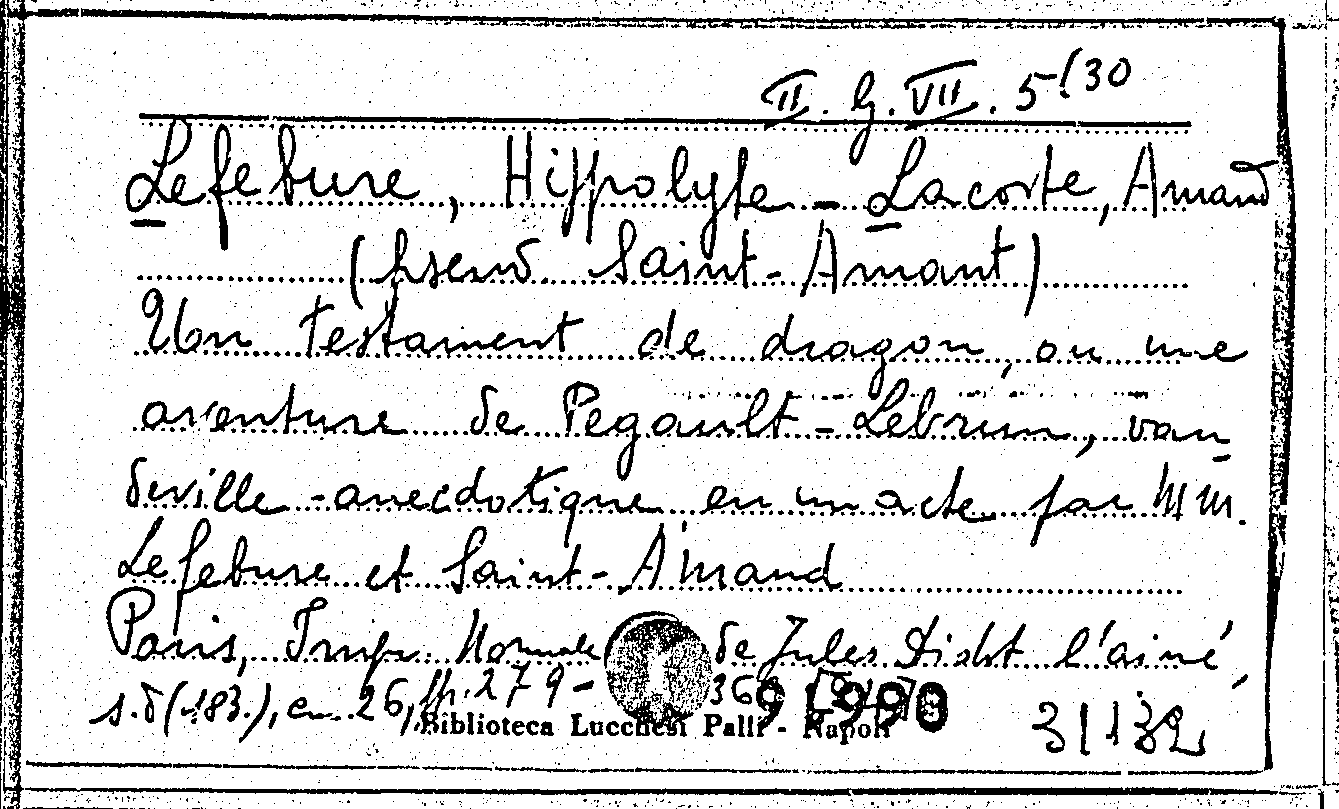 II. G. VII. 5/30
Lefebure, Hippolyte - Lacoste, Amand
(pseud. Saint-Amant)
Un testament de dragon, ou une
aventure de Pegault-Lebrun, vau
deville-anecdotique en un acte par MM.
Lefebure et Saint-Amand
Paris, Imp. Normale de Jules Didot l'ainé,
s.d (183.), cm. 26, pp. 279-
91990
Biblioteca Lucchesi Palli - Napoli
31132